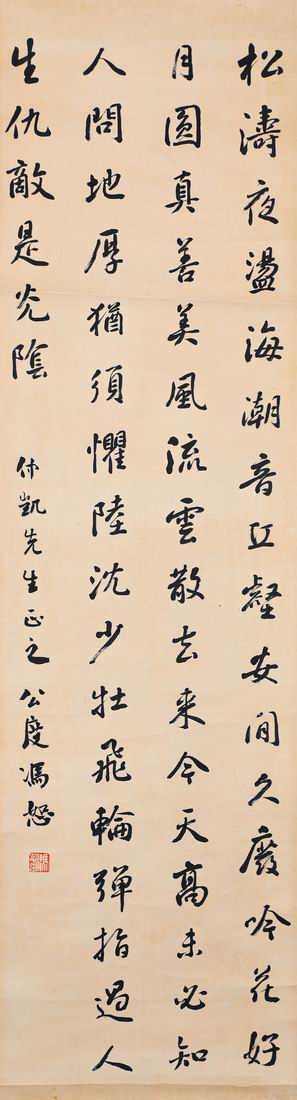 松濤夜盪海潮音丘壑安閒久廢吟花好
月圓真善美風流雲散去來今天高未必知
人問地厚猶須懼陸沈少壯飛輪彈指過人
生仇敵是光陰
仲凱先生正之 公度馮恕